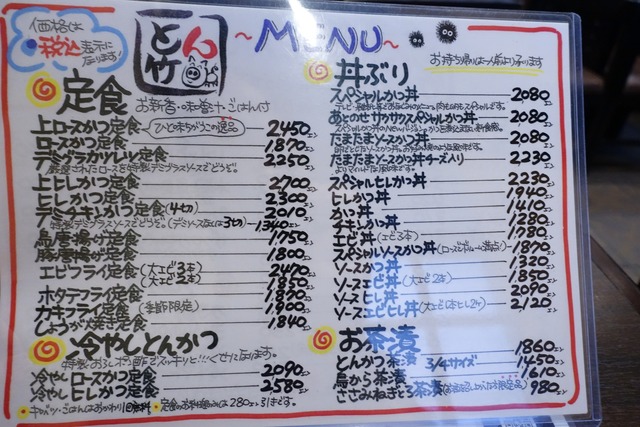 価格は
税込表示に
なります
とん竹
～MENU～
お持ち帰りは一人前より承ります
定食
お新香・味噌汁・ごはん付
上ロースかつ定食 ひと味ちがうこの逸品 2450
ロースかつ定食 1870
デミグラカツレツ定食 2250
上ヒレかつ定食 2700
ヒレかつ定食 2300
デミチキンかつ定食(4切) 2010
1340
鳥唐揚げ定食 1750
豚唐揚げ定食 1800
エビフライ定食 (大エビ3本) 2470
(大エビ2本) 1850
ホタテフライ定食 1820
カキフライ定食 (季節限定) 1900
しょうが焼き定食 1840
冷やしとんかつ
冷やしロースかつ定食 2090
冷やしヒレかつ定食 2580
キャベツ・ごはんはおかわり1回無料 定食のお料理のみは280円引きです。
丼ぶり
スペシャルかつ丼 2080
あとのせサクサクスペシャルかつ丼 2080
たまたまソースかつ丼 2080
たまたまソースかつ丼チーズ入り 2230
スペシャルヒレかつ丼 2230
ヒレかつ丼 1940
かつ丼 1410
チキンかつ丼 1280
エビ丼 (エビ3本) 1780
スペシャルソースかつ丼 1870
ソースかつ丼 1320
ソースエビ丼 (大エビ2本) 1850
ソースヒレ丼 2090
ソースエビヒレ丼 (大エビ1本ヒレ2ケ) 2120
お茶漬
とんかつ茶漬 1860
3/4サイズ 1450
鳥から茶漬 1610
ささみねぎとろ茶漬 980